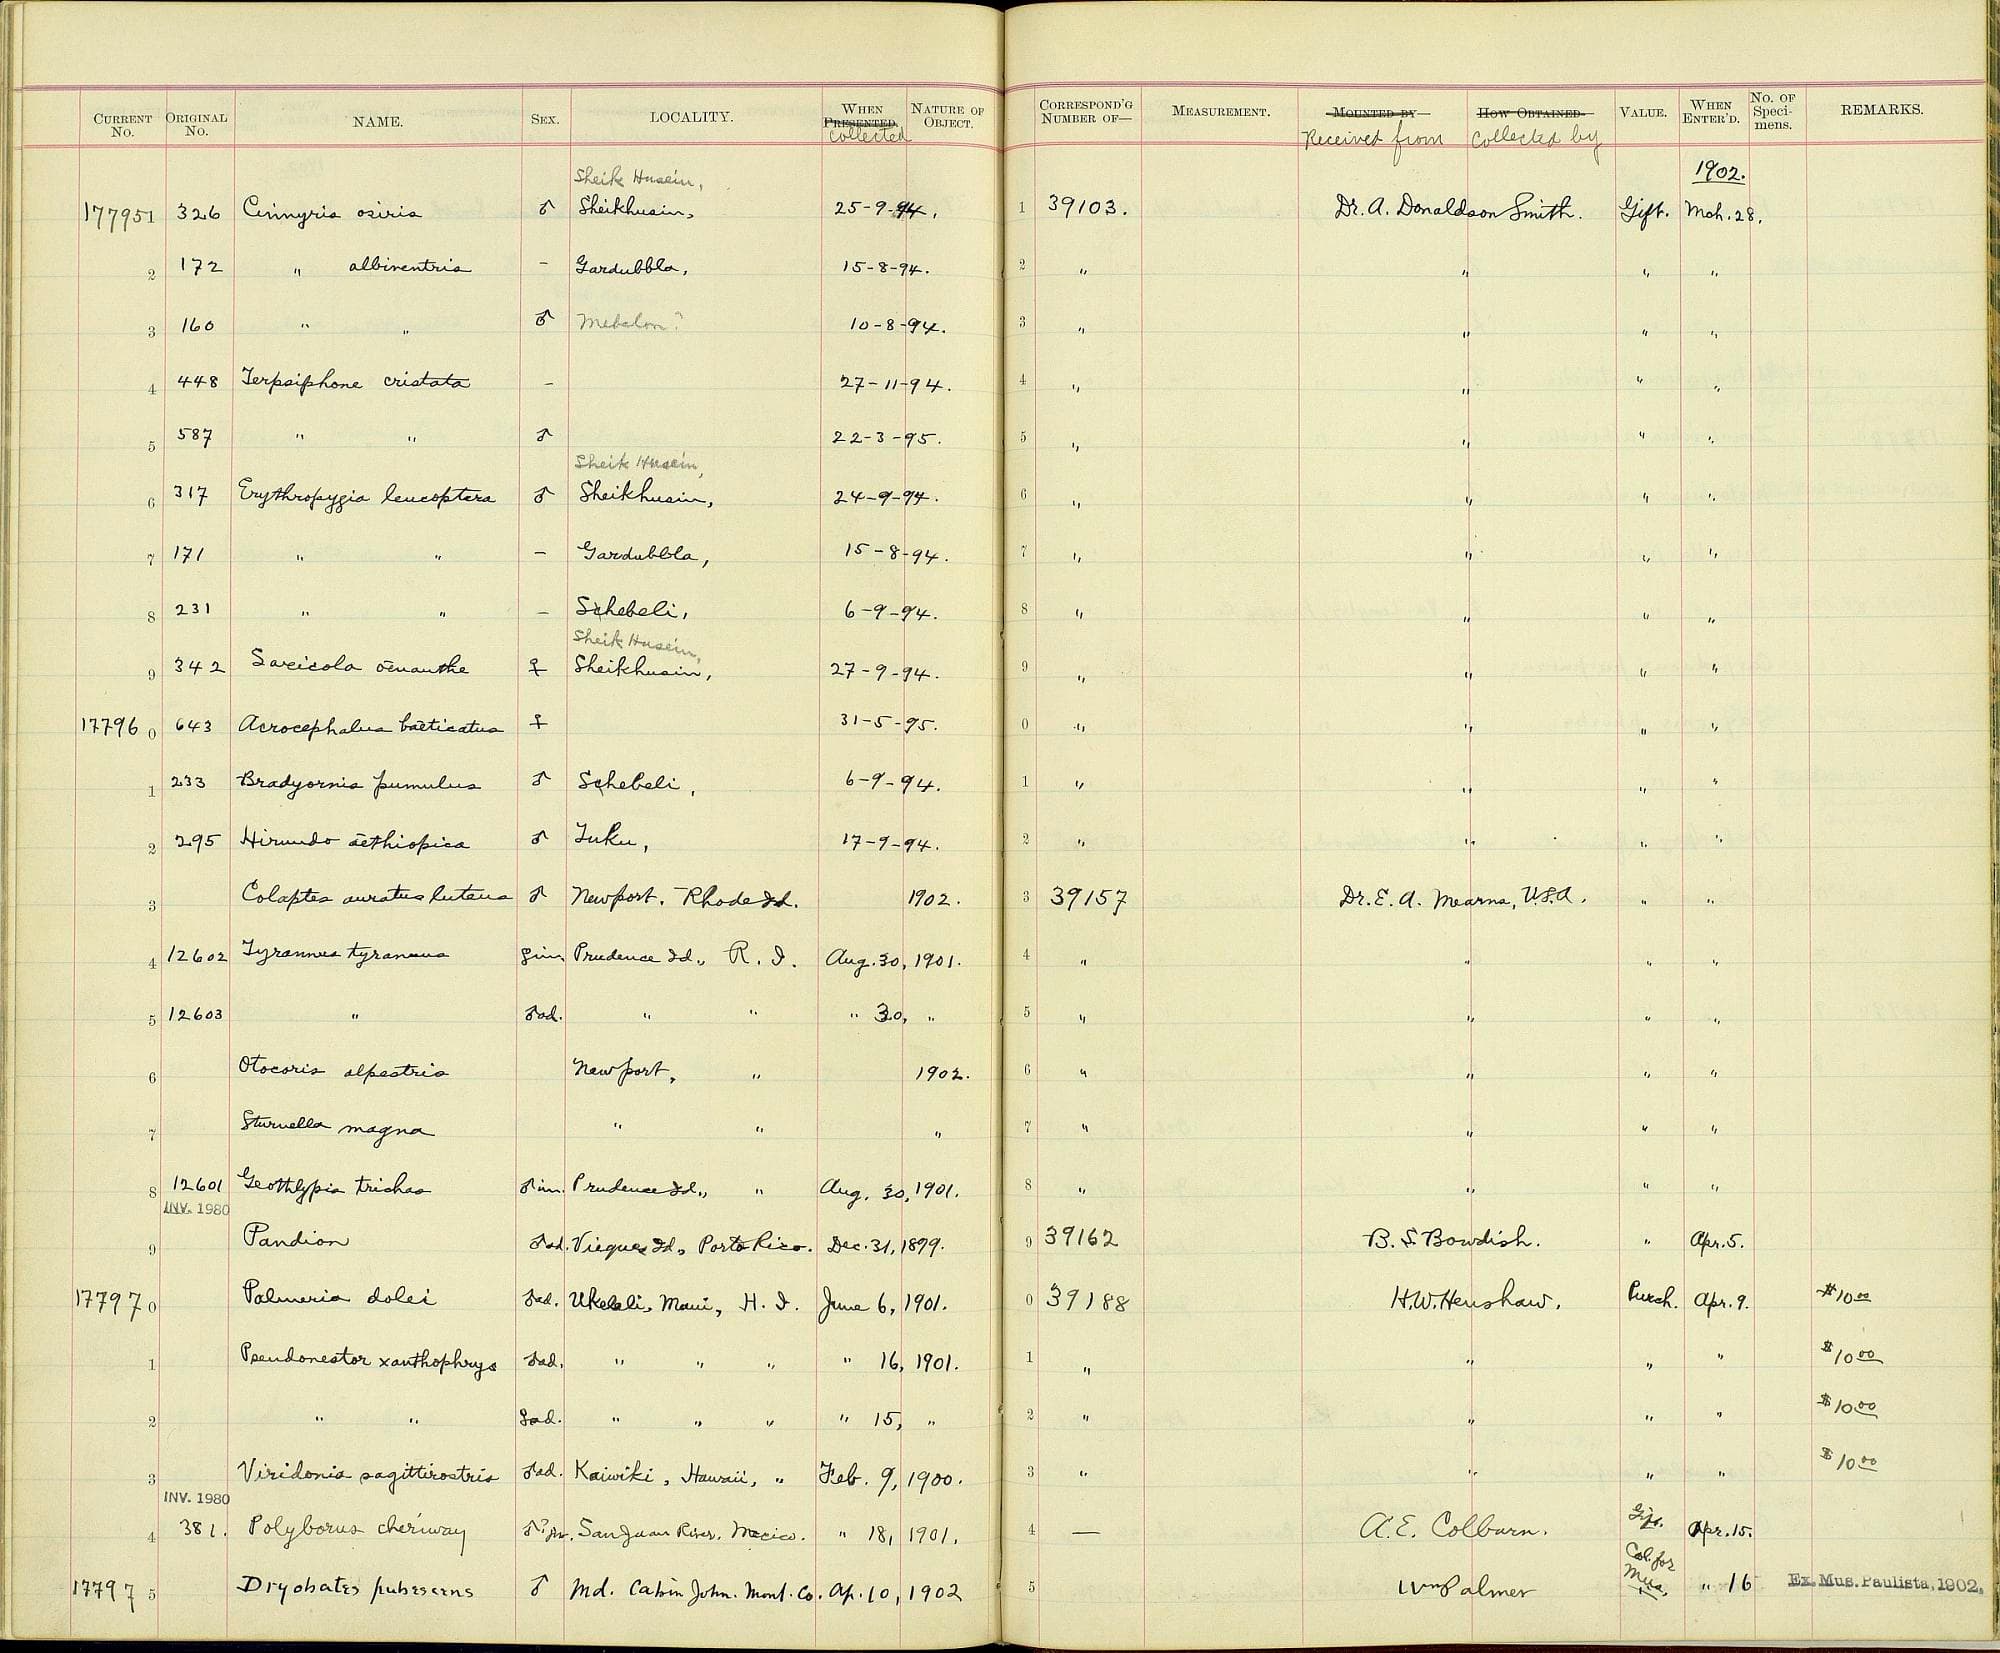 CURRENT No. ORIGINAL No. NAME. SEX. LOCALITY. WHEN PRESENTED. collected NATURE OF OBJECT. CORRESPOND'G NUMBER OF— MEASUREMENT. MOUNTED BY— Received from HOW OBTAINED. Collected by VALUE. WHEN ENTER'D. No. OF Speci-mens. REMARKS.
Sheik Husein, 1902.
177951 326 Cinnyris osiris ♂ Sheikhusin, 25-9-94. 1 39103. Dr. A. Donaldson Smith. Gift. Mch. 28.
2 172 " albiventris – Gardubbla, 15-8-94. 2 " " " "
3 160 " " ♂ 10-8-94. 3 " " " "
4 448 Terpsiphone cristata – 27-11-94. 4 " " " "
5 587 " " ♂ 22-3-95. 5 " " " "
Sheik Husein,
6 317 Erythropygia leucoptera ♂ Sheikhusin, 24-9-94. 6 " " " "
7 171 " " – Gardubbla, 15-8-94. 7 " " " "
8 231 " " – Schebeli, 6-9-94. 8 " " " "
Sheik Husein,
9 342 Saxicola œnanthe ♀ Sheikhusin, 27-9-94. 9 " " " "
177960 643 Acrocephalus bæticatus ♀ 31-5-95. 0 " " " "
1 233 Bradyornis pumulus ♂ Schebeli, 6-9-94. 1 " " " "
2 295 Hirundo æthiopica ♂ Tuku, 17-9-94. 2 " " " "
3 Colaptes auratus luteus ♂ Newport, Rhode Id. 1902. 3 39157 Dr. E. A. Mearns, U.S.A. " "
4 12602 Tyrannus tyrannus ♀im. Prudence Id., R. I. Aug. 30, 1901. 4 " " " "
5 12603 " ♂ad. " " " 30, " 5 " " " "
6 Otocoris alpestris Newport, " 1902. 6 " " " "
7 Sturnella magna " " " 7 " " " "
8 12601 Geothlypis trichas ♂im. Prudence Id., " Aug. 30, 1901. 8 " " " "
INV. 1980
9 Pandion ♂ad. Vieques Id., Porto Rico. Dec. 31, 1899. 9 39162 B. S. Bowdish. " Apr. 5.
177970 Palmeria dolei ♂ad. Ukelele, Maui, H. I. June 6, 1901. 0 39188 H. W. Henshaw. Purch. Apr. 9. $10 00
1 Pseudonestor xanthophrys ♂ad. " " " " 16, 1901. 1 " " " " $10 00
2 " " ♀ad. " " " " 15, " 2 " " " " $10 00
3 Viridonia sagittirostris ♂ad. Kaiwiki, Hawaii, " Feb. 9, 1900. 3 " " " " $10 00
INV. 1980
4 381. Polyborus cheriway ♂? San Juan River, Mexico. " 18, 1901. 4 — A. E. Colburn. Gift. Apr. 15.
177975 Dryobates pubescens ♂ Md. Cabin John. Mont. Co. Ap. 10, 1902 5 Wm Palmer Col. for Mus. " 16 Ex. Mus. Paulista, 1902.